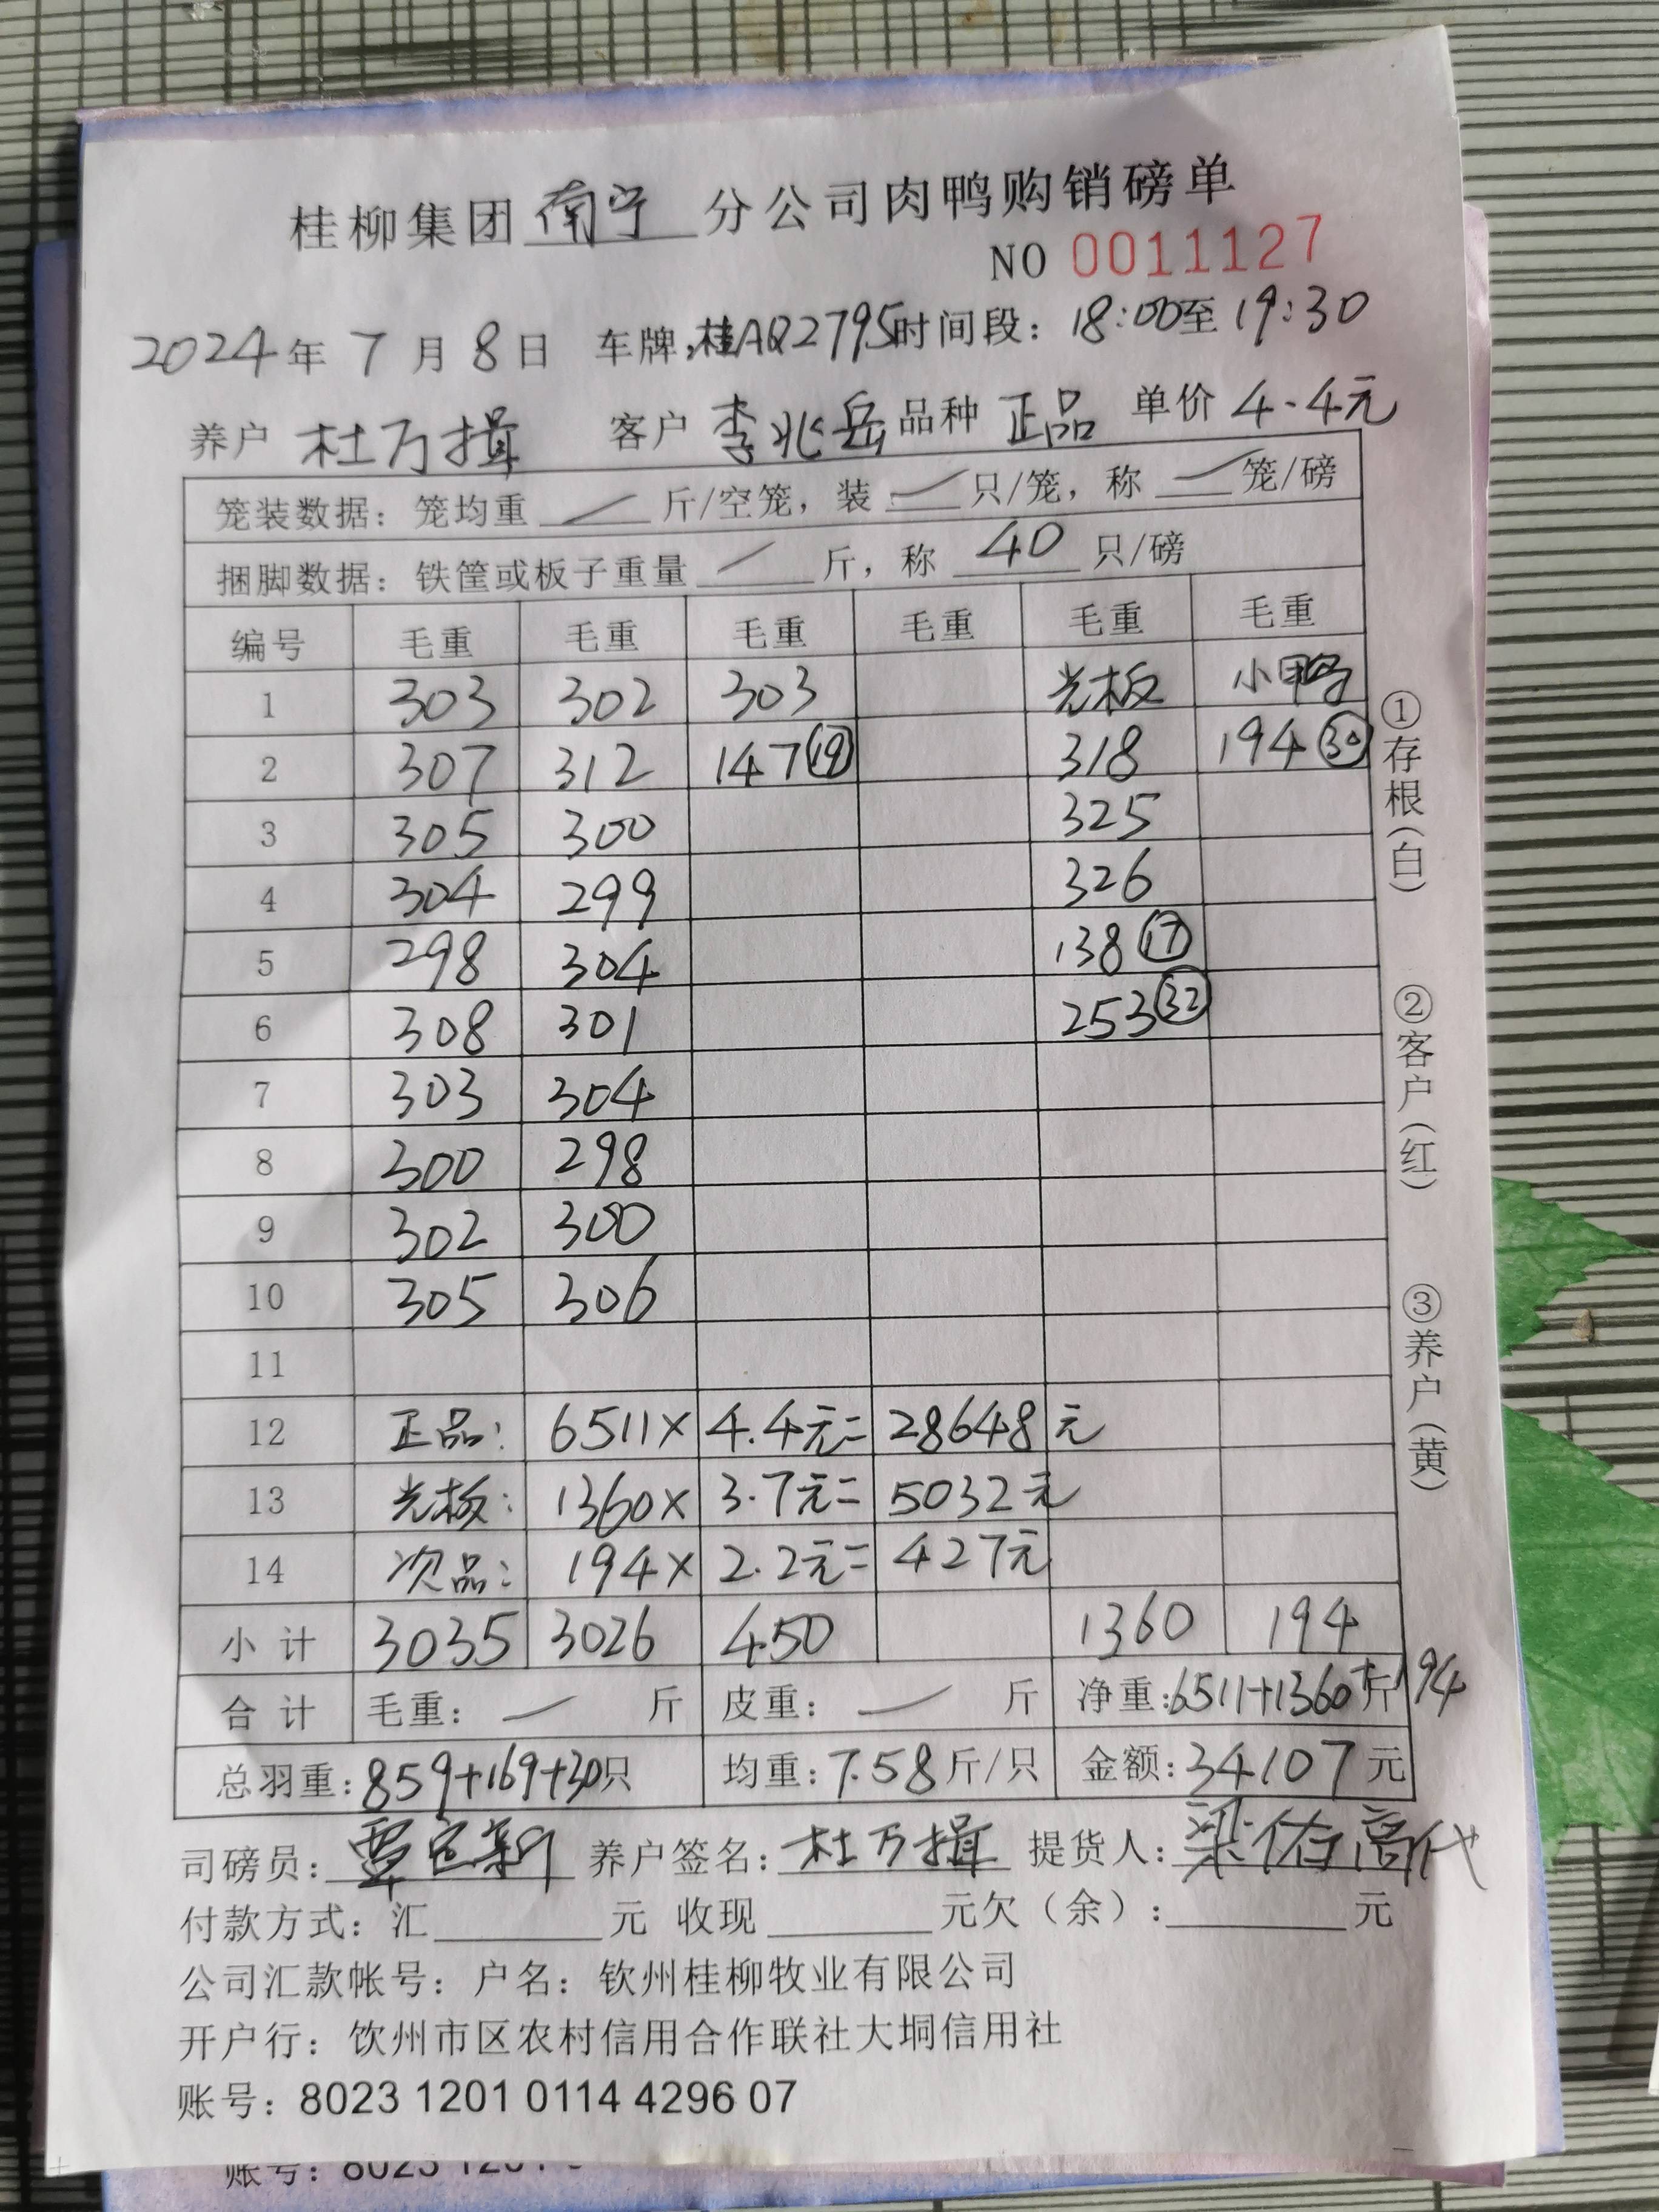 桂柳集团 南宁 分公司肉鸭购销磅单
NO 0011127
2024年 7 月 8 日 车牌:桂AQ2795时间段: 18:00至19:30
养户 杜万揖 客户 李兆岳 品种 正品 单价 4.4元
笼装数据: 笼均重 / 斤/空笼, 装 / 只/笼, 称 / 笼/磅
捆脚数据: 铁筐或板子重量 / 斤, 称 40 只/磅
编号 毛重 毛重 毛重 毛重 毛重 毛重
1 303 302 303 光板 小鸭
2 307 312 147⑲ 318 194㉚
3 305 300 325
4 304 299 326
5 298 304 138⑰
6 308 301 253㉜
7 303 304
8 300 298
9 302 300
10 305 306
11
12 正品: 6511× 4.4元= 28648元
13 光板: 1360× 3.7元= 5032元
14 次品: 194× 2.2元= 427元
小计 3035 3026 450 1360 194
合计 毛重: / 斤 皮重: / 斤 净重:6511+1360+194斤
总羽重:859+169+30只 均重:7.58斤/只 金额:34107元
司磅员: 覃 养户签名: 杜万揖 提货人: 梁佑高代
付款方式: 汇 元 收现 元欠(余): 元
公司汇款帐号: 户名: 钦州桂柳牧业有限公司
开户行: 饮州市区农村信用合作联社大垌信用社
账号: 8023 1201 0114 4296 07
①存根(白)
②客户(红)
③养户(黄)
账号: 8023